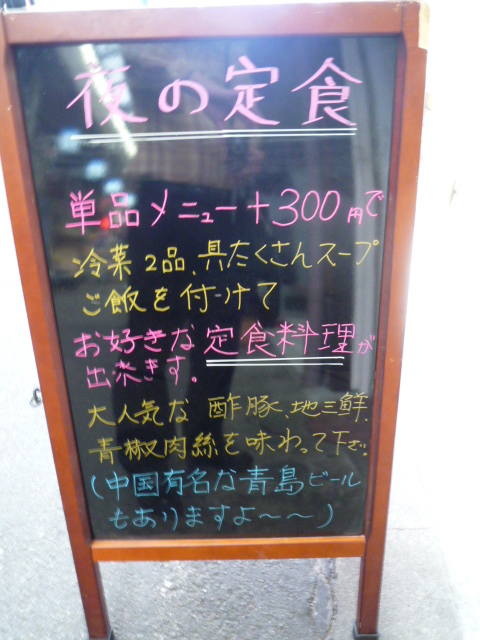 夜の定食
単品メニュー+300円で
冷菜2品、具たくさんスープ
ご飯を付けて
お好きな定食料理が
出来ます。
大人気な酢豚、地三鮮、
青椒肉絲を味わって下さい。
(中国有名な青島ビール
もありますよ〜〜)